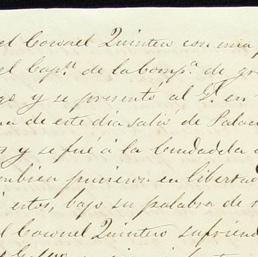 el Coronel Quintero con una
el Capn. de la Compa. de gr
y se presentó al G. en
na de este dia salio de Palac
y se fué a la Ciudadela
ambien pusieron en libertad
estes, bajo su palabra de
el Coronel Quintero sufriend